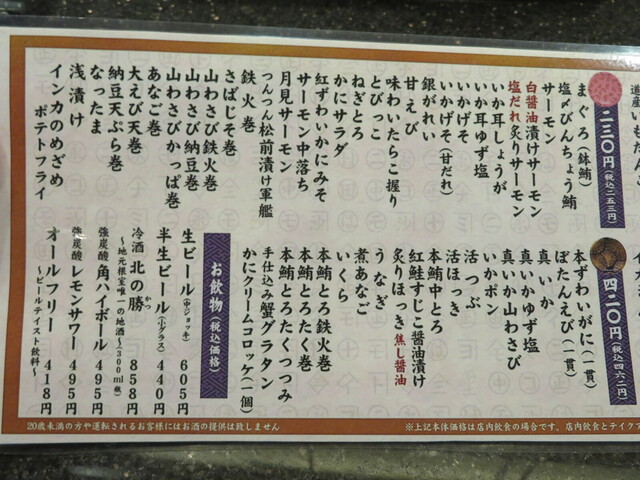 道産い
二三〇円（税込二五三円）
まぐろ（鉢鮪）
塩〆びんちょう鮪
サーモン
白醤油漬けサーモン
塩だれ炙りサーモン
いか耳しょうが
いか耳ゆず塩
いかげそ
いかげそ（甘だれ）
銀がれい
甘えび
味わいたらこ握り
とびっこ
ねぎとろ
かにサラダ
紅ずわいかにみそ
サーモン中落ち
月見サーモン
つんつん松前漬け軍艦
鉄火巻
さばじそ巻
山わさび鉄火巻
山わさび納豆巻
山わさびかっぱ巻
あなご巻
大えび天巻
納豆天ぷら巻
なったま
浅漬け
インカのめざめ
ポテトフライ
四二〇円（税込四六二円）
本ずわいがに（一貫）
ぼたんえび（一貫）
真いか
真いかゆず塩
真いか山わさび
いかポン
活つぶ
活ほっき
本鮪中とろ
紅鮭すじこ醤油漬け
炙りほっき焦し醤油
うなぎ
煮あなご
いくら
本鮪とろ鉄火巻
本鮪とろたく巻
本鮪とろたくつつみ
手仕込み蟹グラタン
かにクリームコロッケ（一個）
お飲物（税込価格）
生ビール（中ジョッキ） 605円
半生ビール（小グラス） 440円
冷酒 北の勝 かつ 858円
〜地元根室唯一の地酒〜（300ml瓶）
強炭酸 角ハイボール 495円
強炭酸 レモンサワー 495円
オールフリー 418円
〜ビールテイスト飲料〜
20歳未満の方や運転されるお客様にはお酒の提供は致しません
※上記本体価格は店内飲食の場合です。店内飲食とテイクア